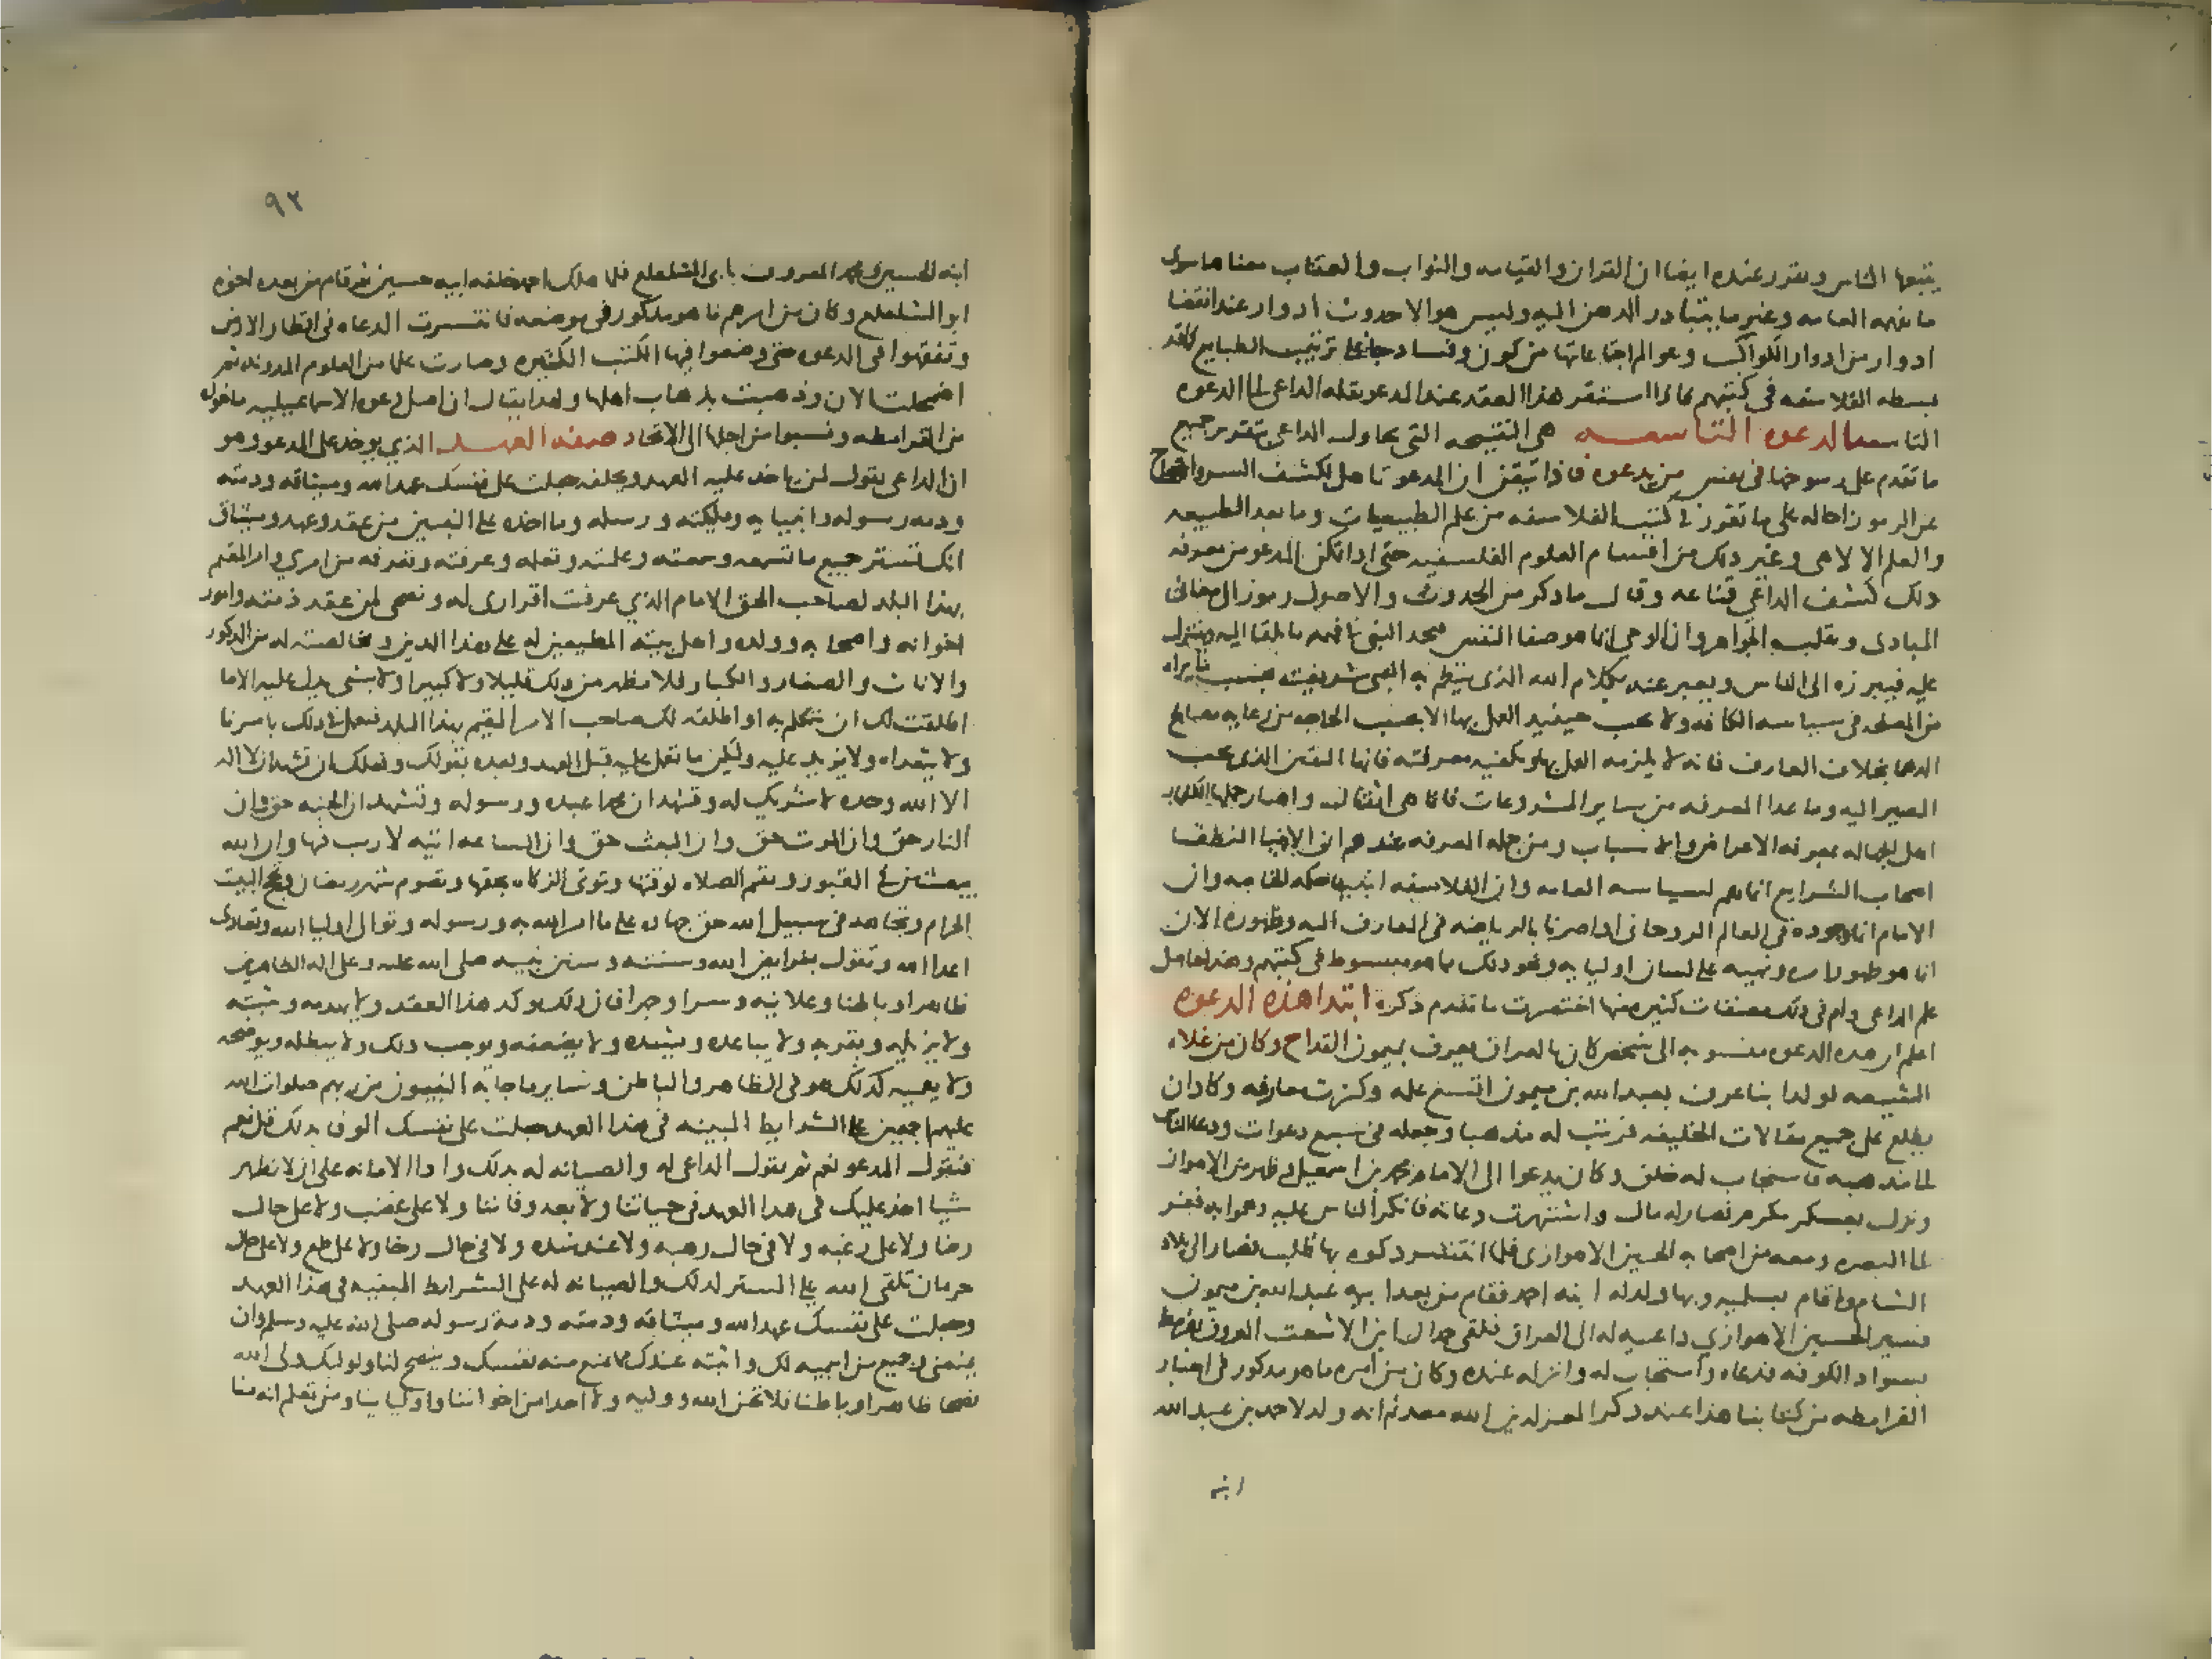 يتبعها الناس ويقرر عنده ايضا ان القران والقيامه والثواب والعقاب معناها سوى
ما يفهمه العامه وغير ما يتبادر الدهن اليه وليس هو الا حدوث ادوار عند انقضا
ادوار من ادوار الكواكب وعوالم اجتماعاتها من كون وفساد جا على ترتيب الطبايع كما قد
بسطه الفلاسفه في كتبهم فاذا استقر هذا العقد عند المدعو نقله الداعى الى الدعوه
التاسعه الدعوه التاسعه هي النتيجه التى يحاول الداعى بتقرير جميع
ما تقدم على رسوخها في نفس من يدعوه فاذا تيقن ان المدعو تاهل لكشف السر والافصاح
عن الرموز احاله على ما تقرر في كتب الفلاسفه من علم الطبيعيات وما بعد الطبيعه
والعلم الالاهى وغير دلك من اقسام العلوم الفلسفيه حتى ادا تمكن المدعو من معرفه
دلك كشف الداعي قناعه وقال ما دكر من الحدوث والاصول رموز الى معانى
المبادى وتقلب الجواهر وان الوحى انما هو صفا النفس فيجد النبى في فهمه ما يلقا اليه ويتنزل
عليه فيبرزه الى الناس ويعبر عنه بكلام الله الذى ينظم به النبى شريعته بحسب ما يراه
من المصلحه في سياسه الكافه ولا يجب حينيد العمل بها الا بحسب الحاجه من رعايه مصالح
الدهما بخلاف العارف فانه لا يلزمه العمل بها ويكفيه معرفته فانها اليقين الذى يجب
المصير اليه وما عدا المعرفه من ساير المشروعات فانما هي اثقال واصار حملها الكفار
اهل الجهاله لمعرفه الاعراض والاسباب ومن جمله المعرفه عندهم ان الانبيا النطقا
اصحاب الشرايع انما هم لسياسه العامه وان الفلاسفه انبيا حكمه الخاصه وان
الامام انما وجوده في العالم الروحانى ادا صرنا بالرياضه في المعارف اليه وظهوره الان
انما هو ظهور امره ونهيه على لسان اوليايه ونحو دلك مما هو مبسوط في كتبهم وهذا حاصل
علم الداعى ولهم في دلك مصنفات كثيره منها اختصرت ما تقدم دكره ابتدا هذه الدعوه
اعلم ان هذه الدعوه منسوبه الى شخص كان بالعراق يعرف بميمون القداح وكان من غلاه
الشيعه فولد ابنا عرف بعبد الله بن ميمون اتسع علمه وكثرت معارفه وكاد ان
يطلع على جميع مقالات الخليقه فرتب له مذهبا وجعله في سبع دعوات ودعا الناس
الى مذهبه فاستجاب له خلق وكان يدعوا الى الامام محمد بن اسمعيل وظهر من الاهواز
ونزل بعسكر مكرم فصار له مال واشتهرت دعاته فانكر الناس عليه وهموا به ففر
الى البصره ومعه من اصحابه الحسين الاهوازى فلما انتشر دكره بها طلب فصار الى بلاد
الشام واقام بسلميه وبها ولد له ابنه احمد فقام من بعد ابيه عبد الله بن ميمون
فسير الحسين الاهوازي داعيه له الى العراق فلقى حمدان بن الاشعث المعروف بقرمط
بسواد الكوفه فدعاه واستجاب له وانزله عنده وكان من امره ما هو مدكور في اخبار
القرامطه من كتابنا هذا عند دكر المعز لدين الله معد ثم انه ولد لاحمد بن عبد الله
ابنه
٩٢
ابنه الحسين ومحمد المعروف بابى الشلعلع فلما هلك احمد خلفه ابنه حسين ثم قام من بعده اخوه
ابو الشلعلع وكان من امرهم ما هو مدكور في موضعه فانتشرت الدعاه في اقطار الارض
وتفقهوا في الدعوه حتى وضعوا فيها الكتب الكثيره وصارت علما من العلوم المدونه ثم
اضمحلت الان وذهبت بدهاب اهلها ولهدا يقال ان اصل دعوه الاسماعيليه ماخوذ
من القرامطه ونسبوا من اجلها الى الالحاد صفه العهد الذي يوخد على المدعو وهو
ان الداعى يقول لمن ياخد عليه العهد ويحلفه جعلت على نفسك عهد الله وميثاقه ودمته
ودمه رسوله وانبيايه وملايكته ورسله وما اخذه على النبيين من عقد وعهد وميثاق
انك تستر جميع ما تسمعه وسمعته وعلمته وتعلمه وعرفته وتعرفه من امري وامر المقيم
بهذا البلد لصاحب الحق الامام الذي عرفت اقرارى له ونصحى لمن عقد ذمته وامور
اخوانه واصحابه وولده واهل بيته المطيعين له على هذا الدين ومخالصته له من الدكور
والاناث والصغار والكبار فلا تظهر من دلك قليلا ولا كبيرا ولا بشى يدل عليه الا ما
اطلقت لك ان تتكلم به او اطلقه لك صاحب الامر المقيم بهذا البلد فتعمل في دلك بامرنا
ولا تتعداه ولا تزيد عليه وليكن ما تعمل عليه قبل العهد وبعده بقولك وفعلك ان تشهد ان لا اله
الا الله وحده لا شريك له وتشهد ان محمدا عبده ورسوله وتشهد ان الجنه حق وان
النار حق وان الموت حق وان البعث حق وان الساعه اتيه لا ريب فيها وان الله
يبعث من في القبور وتقيم الصلاه لوقتها وتوتى الزكاه بحقها وتصوم شهر رمضان وتحج البيت
الحرام وتجاهد في سبيل الله حق جهاده على ما امر الله به ورسوله وتوالى اوليا الله وتعادى
اعدا الله وتقول بفرايض الله وسننه وسنن نبيه صلى الله عليه وعلى اله الطاهرين
ظاهرا وباطنا وعلانيه وسرا وجهرا فان دلك يوكد هذا العقد ولا يهدمه ويثبته
ولا يزيله ويقربه ولا يباعده ويشده ولا يضعفه ويوجب دلك ولا يبطله ويوضحه
ولا يعميه كدلك هو في الظاهر والباطن وساير ما جا به النبيون من ربهم صلوات الله
عليهم اجمعين على الشرايط المبينه في هذا العهد جعلت على نفسك الوفا بدلك قل نعم
فيقول المدعو نعم ثم يقول الداعى له والصيانه له بدلك وادا الامانه على ان لا تظهر
شيا اخذ عليك في هدا العهد في حياتنا ولا بعد وفاتنا ولا على غضب ولا على حال
رضا ولا على رغبه ولا في حال رهبه ولا عند شده ولا في حال رخا ولا على طمع ولا على حال
حرمان تلقى الله على الستر لدلك والصيانه له على الشرايط المبينه في هذا العهد
وجعلت على نفسك عهد الله وميثاقه ودمته ودمة رسوله صلى الله عليه وسلم وان
تمنعنى وجميع من اسميه لك واثبته عندك مما تمنع منه نفسك وتنصح لنا ولوليك ولى الله
نصحا ظاهرا وباطنا فلا تخن الله ووليه ولا احدا من اخواننا واوليايناومن تعلم انه منا